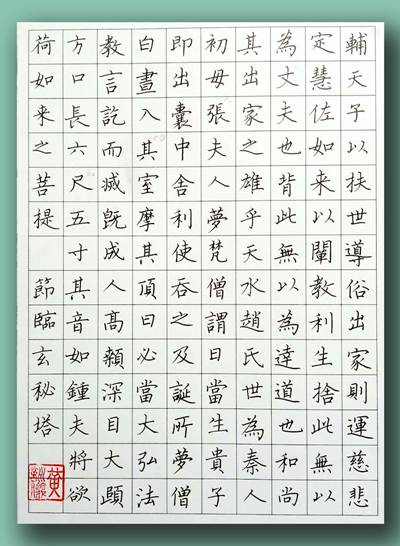 輔天子以扶世導俗出家則運慈悲
定慧佐如来以闡教利生捨此無以
為丈夫也背此無以為達道也和尚
其出家之雄乎天水趙氏世為秦人
初母張夫人夢梵僧謂曰當生貴子
即出囊中舍利使吞之及誕所夢僧
白晝入其室摩其頂曰必當大弘法
教言訖而滅既成人高顙深目大頤
方口長六尺五寸其音如鍾夫將欲
荷如来之菩提 節臨玄秘塔
黄